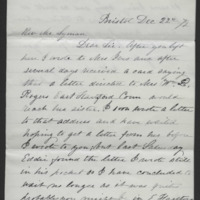 Bristol Dec 22nd
Rev Mr Lyman
Dear Sir. After you left
here I wrote to Mrs
several days received a card saying
that a letter directed to Mrs Wm B.
Rogers East Hartford Conn would
reach her sister. I soon wrote a letter
to that address and have waited
hoping to get a letter from her before
I wrote to you. But last
Eddie found the letter I wrote still
in his pocket so I have concluded to
wait no longer as it was quite